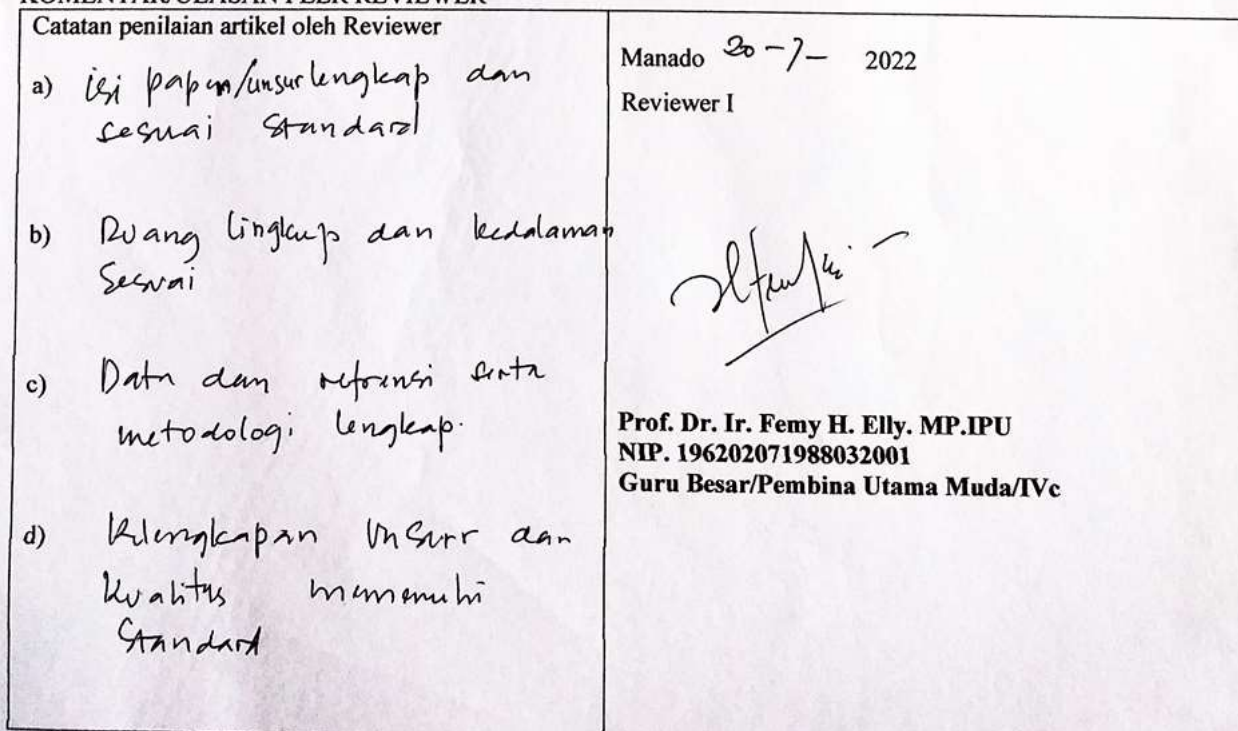 KOMENTAR/ULASAN PEER REVIEWER
Catatan penilaian artikel oleh Reviewer
a) isi paper/unsur lengkap dan
sesuai Standard
b) Ruang lingkup dan kedalaman
Sesuai
c) Data dan referensi serta
metodologi lengkap.
d) Kelengkapan Unsur dan
Kualitas memenuhi
Standard
Manado 20-7- 2022
Reviewer I
Prof. Dr. Ir. Femy H. Elly. MP.IPU
NIP. 196202071988032001
Guru Besar/Pembina Utama Muda/IVc